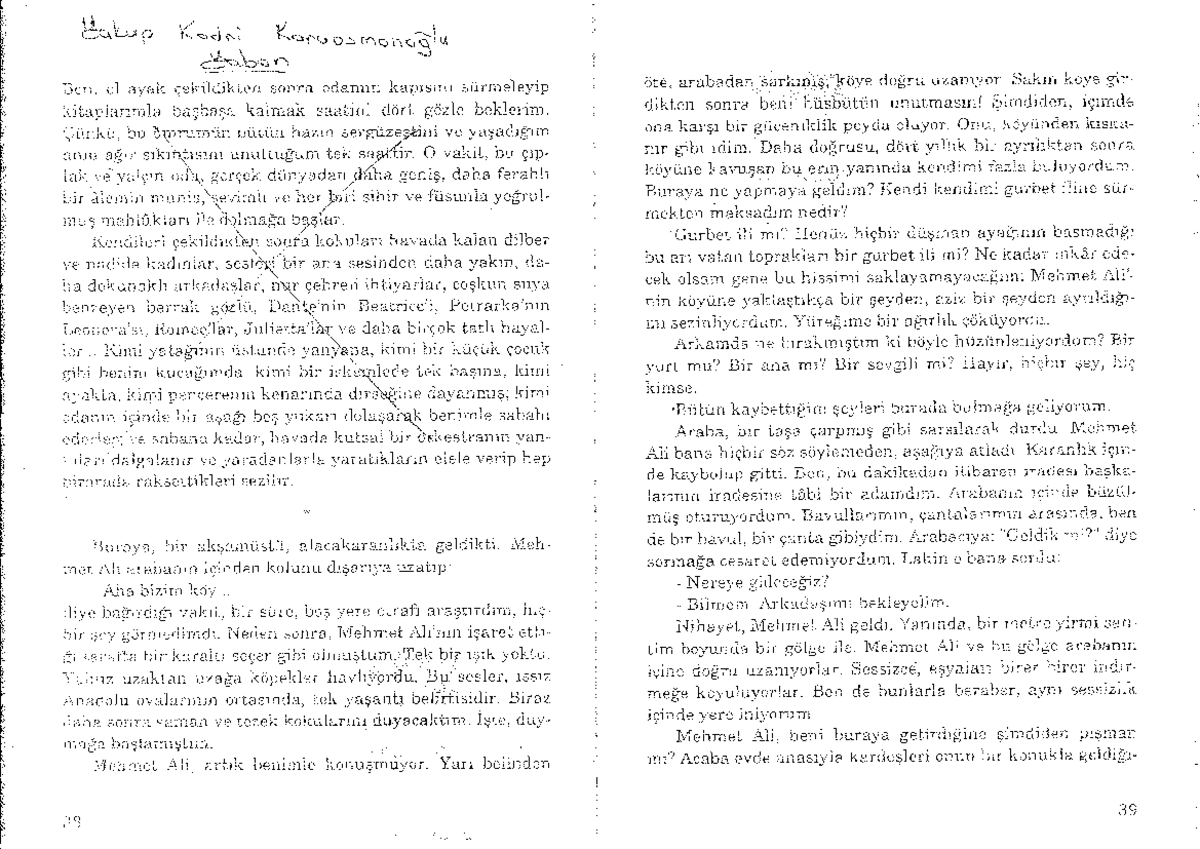 Yakup Kadri Karaosmanoğlu
Yaban
Ben, el ayak çekildikten sonra odamın kapısını sürmeleyip
kitaplarımla başbaşa kalmak saatini dört gözle beklerim.
Çünkü, bu ömrümün bütün hazin sergüzeştini ve yaşadığım
anın ağır sıkıntısını unuttuğum tek saattir. O vakit, bu çıp-
lak ve yalçın oda, gerçek dünyadan daha geniş, daha ferahlı
bir âlemin munis, sevimli ve her biri sihir ve füsunla yoğrul-
muş mahlûkları ile dolmağa başlar.
Kendileri çekildikten sonra kokuları havada kalan dilber
ve nadide kadınlar, sesleri bir ana sesinden daha yakın, da-
ha dokunaklı arkadaşlar, nur çehreli ihtiyarlar, coşkun suya
benzeyen berrak gözlü, Dante'nin Beatrice'i, Petrarka'nın
Leonora'sı, Romeo'lar, Julietta'lar ve daha birçok tatlı hayal-
ler... Kimi yatağının üstünde yanyana, kimi bir küçük çocuk
gibi benim kucağımda, kimi bir iskemlede tek başına, kimi
ayakta, kimi pencerenin kenarında dirseğine dayanmış; kimi
odanın içinde bir aşağı beş yukarı dolaşarak benimle sabahı
ederler; ve sabaha kadar, havada kutsal bir orkestranın yan-
kıları dalgalanır ve yaradanlarla yaratıkların elele verip hep
birarada raksettikleri sezilir.
*
Buraya, bir akşamüstü, alacakaranlıkta geldikti. Meh-
met Ali arabanın içinden kolunu dışarıya uzatıp:
Aha bizim köy...
diye bağırdığı vakit, bir süre, boş yere etrafı araştırdım, hiç-
bir şey görmedimdi. Neden sonra, Mehmet Ali'nin işaret etti-
ği tarafta bir karaltı seçer gibi olmuştum. Tek bir ışık yoktu.
Yalnız uzaktan uzağa köpekler havlıyordu. Bu sesler, ıssız
Anadolu ovalarının ortasında, tek yaşantı belirtisidir. Biraz
daha sonra saman ve tezek kokularını duyacaktım. İşte, duy-
mağa başlamıştım.
Mehmet Ali, artık benimle konuşmuyor. Yarı belinden
38
öte, arabadan sarkmış, köye doğru uzanıyor. Sakın köye gir-
dikten sonra beni büsbütün unutmasın! Şimdiden, içimde
ona karşı bir güceniklik peyda oluyor. Onu, köyünden kıska-
nır gibi idim. Daha doğrusu, dört yıllık bir ayrılıktan sonra
köyüne kavuşan bu erin yanında kendimi fazla buluyordum.
Buraya ne yapmaya geldim? Kendi kendimi gurbet iline sür-
mekten maksadım nedir?
Gurbet ili mi? Henüz hiçbir düşman ayağının basmadığı
bu arı vatan toprakları bir gurbet ili mi? Ne kadar inkâr ede-
cek olsam gene bu hissimi saklayamayacağım: Mehmet Ali'-
nin köyüne yaklaştıkça bir şeyden, aziz bir şeyden ayrıldığı-
mı sezinliyordum. Yüreğime bir ağırlık çöküyordu.
Arkamda ne bırakmıştım ki böyle hüzünleniyordum? Bir
yurt mu? Bir ana mı? Bir sevgili mi? Hayır, hiçbir şey, hiç
kimse.
Bütün kaybettiğim şeyleri burada bulmağa geliyorum.
Araba, bir taşa çarpmış gibi sarsılarak durdu. Mehmet
Ali bana hiçbir söz söylemeden, aşağıya atladı. Karanlık için-
de kaybolup gitti. Ben, bu dakikadan itibaren iradesi başka-
larının iradesine tâbi bir adamdım. Arabanın içinde büzül-
müş oturuyordum. Bavullarımın, çantalarımın arasında, ben
de bir bavul, bir çanta gibiydim. Arabacıya: "Geldik mi?" diye
sormağa cesaret edemiyordum. Lakin o bana sordu:
- Nereye gideceğiz?
- Bilmem. Arkadaşımı bekleyelim.
Nihayet, Mehmet Ali geldi. Yanında, bir metre yirmi san-
tim boyunda bir gölge ile. Mehmet Ali ve bu gölge arabanın
içine doğru uzanıyorlar. Sessizce, eşyaları birer birer indir-
meğe koyuluyorlar. Ben de bunlarla beraber, aynı sessizlik
içinde yere iniyorum.
Mehmet Ali, beni buraya getirdiğine şimdiden pişman
mı? Acaba evde anasıyla kardeşleri onun bir konukla geldiği-
39